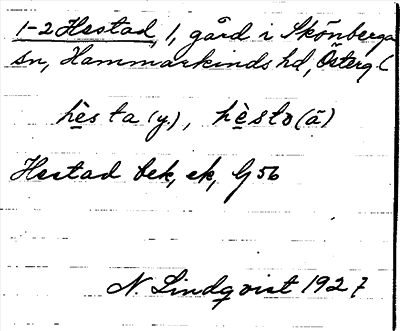 1-2 Hestad, 1, gård i Skönberga
sn, Hammarkinds hd, Österg
hèsta (y), hèsto (ä)
Hestad bek, ek, G 56
N. Lindqvist 1927